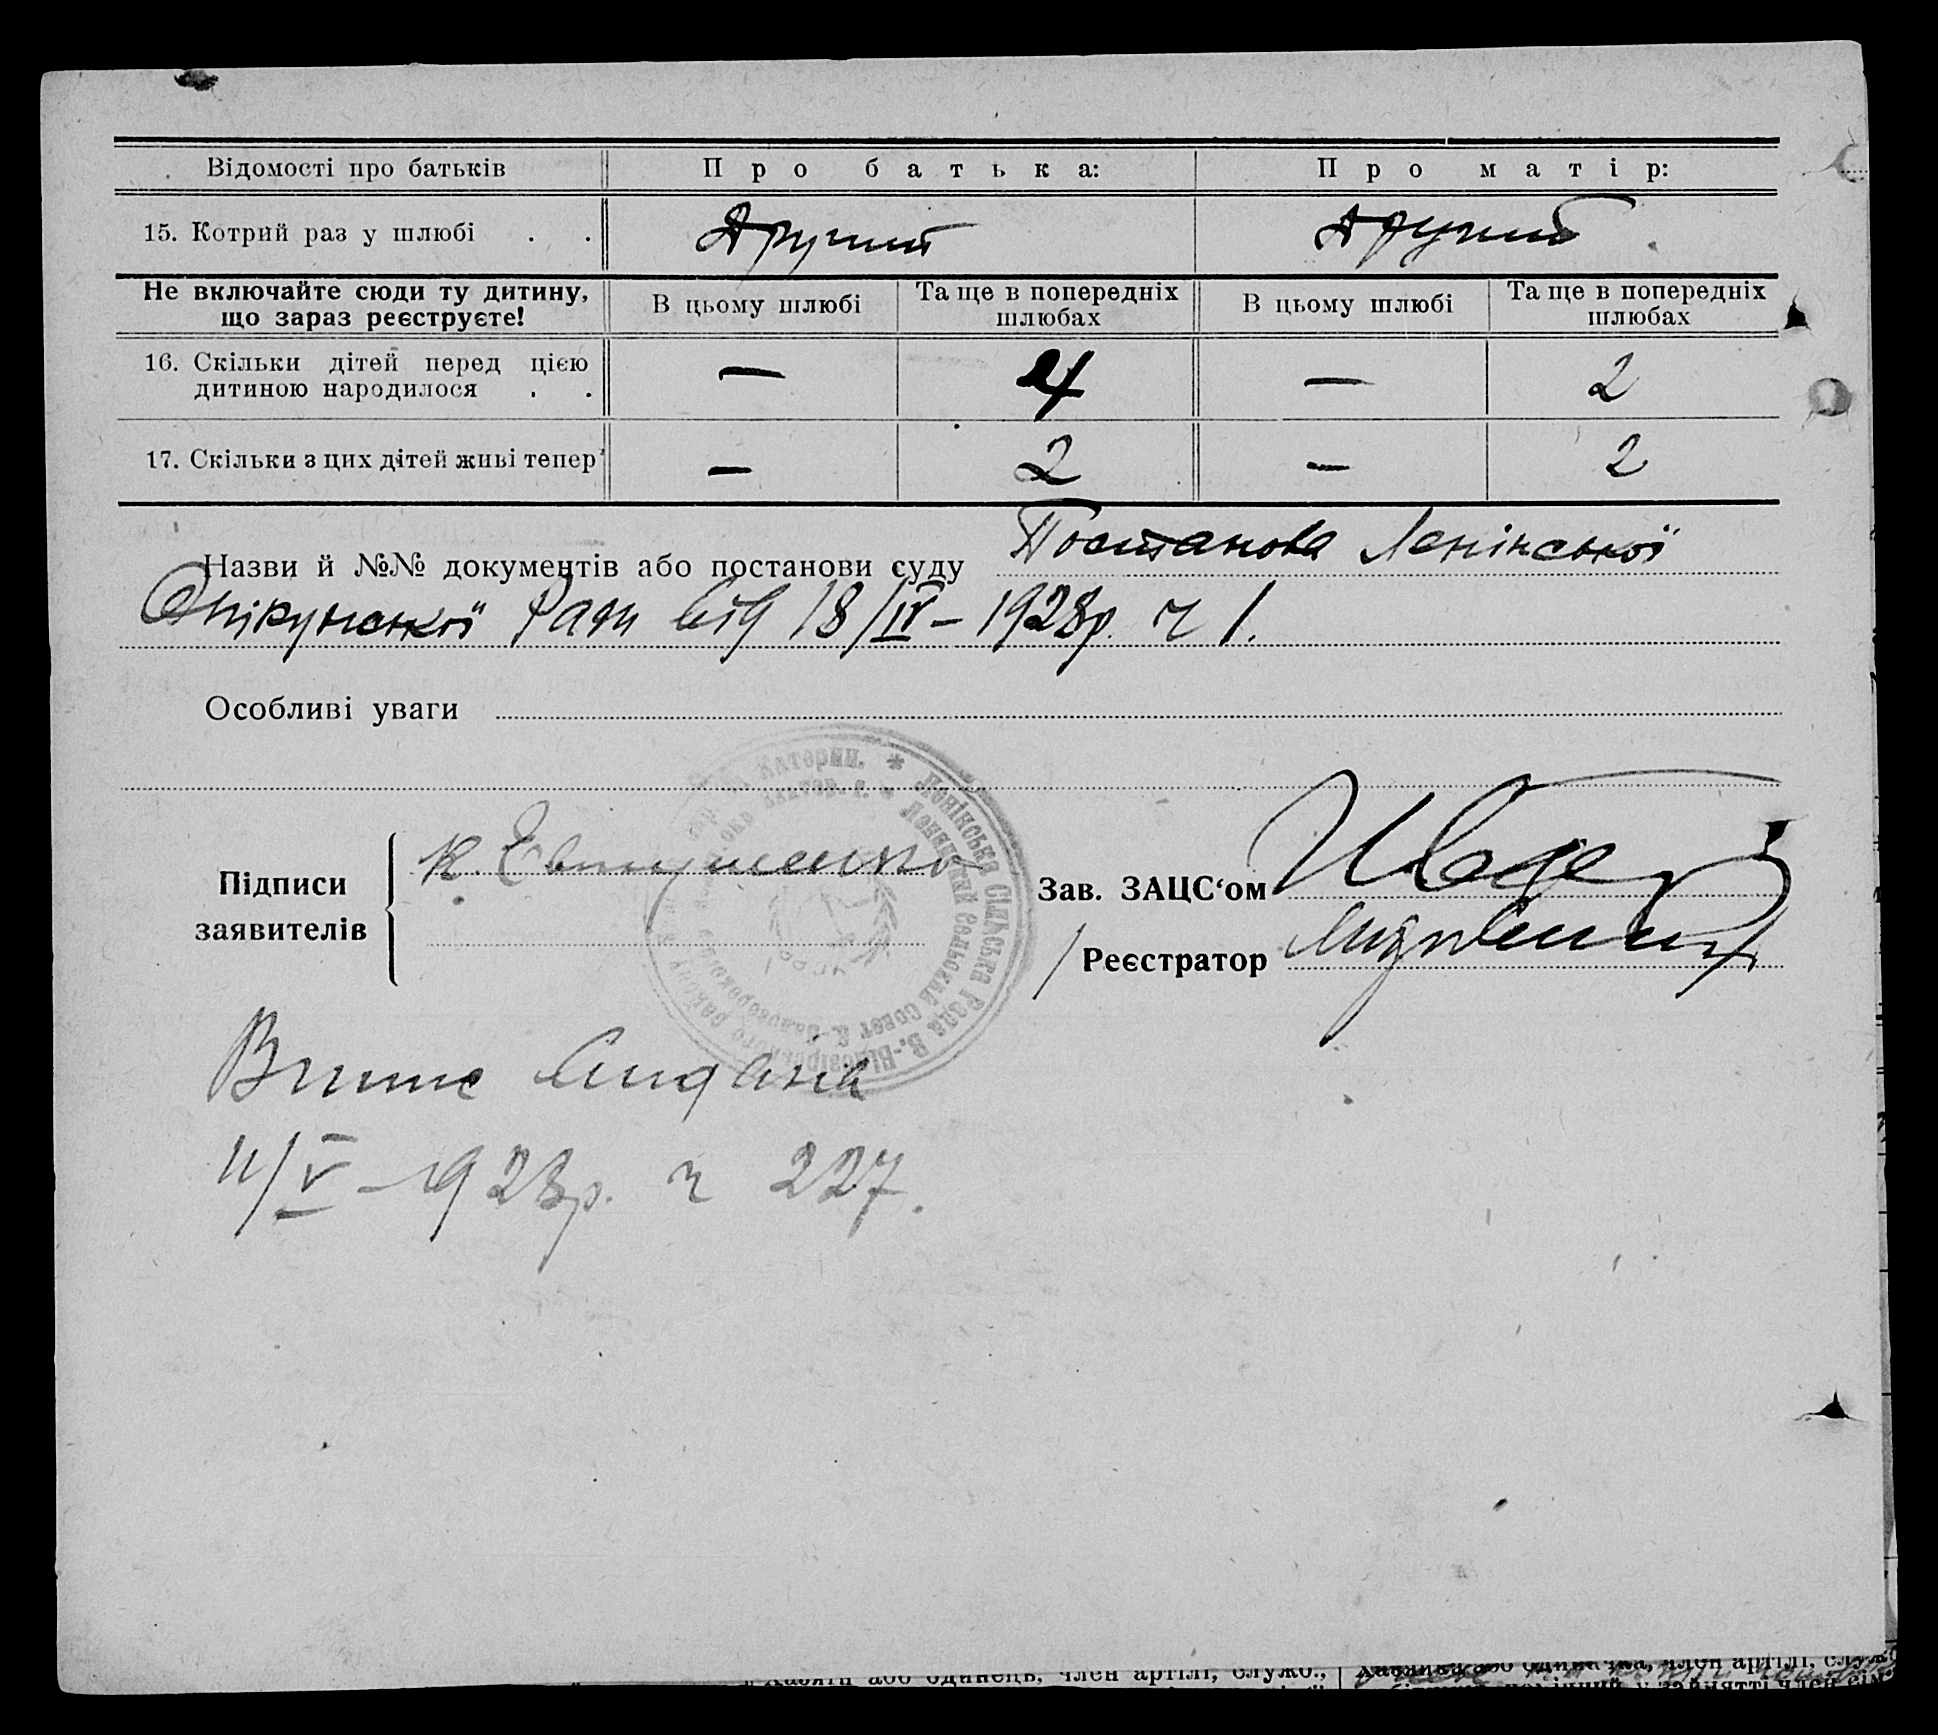 Відомості про батьків
Про батька:
Про матір:
15. Котрий раз у шлюбі . .
Другий
Другий
Не включайте сюди ту дитину,
що зараз реєструєте!
В цьому шлюбі
Та ще в попередніх
шлюбах
В цьому шлюбі
Та ще в попередніх
шлюбах
16. Скільки дітей перед цією
дитиною народилося . .
—
4
—
2
17. Скільки з цих дітей живі тепер
—
2
—
2
Назви й №№ документів або постанови суду Постанова Ленінської
Опікунської Ради від 18/IV – 1928р. ч 1.
Особливі уваги
Підписи
заявителів
К Евтушенко
Зав. ЗАЦС‘ом
Реєстратор
Ленінська Сільська Рада В.-Білозірського району
Ленинский Сельский Совет В.-Белозерского
Випис видана
11/V – 1928р. ч 227.